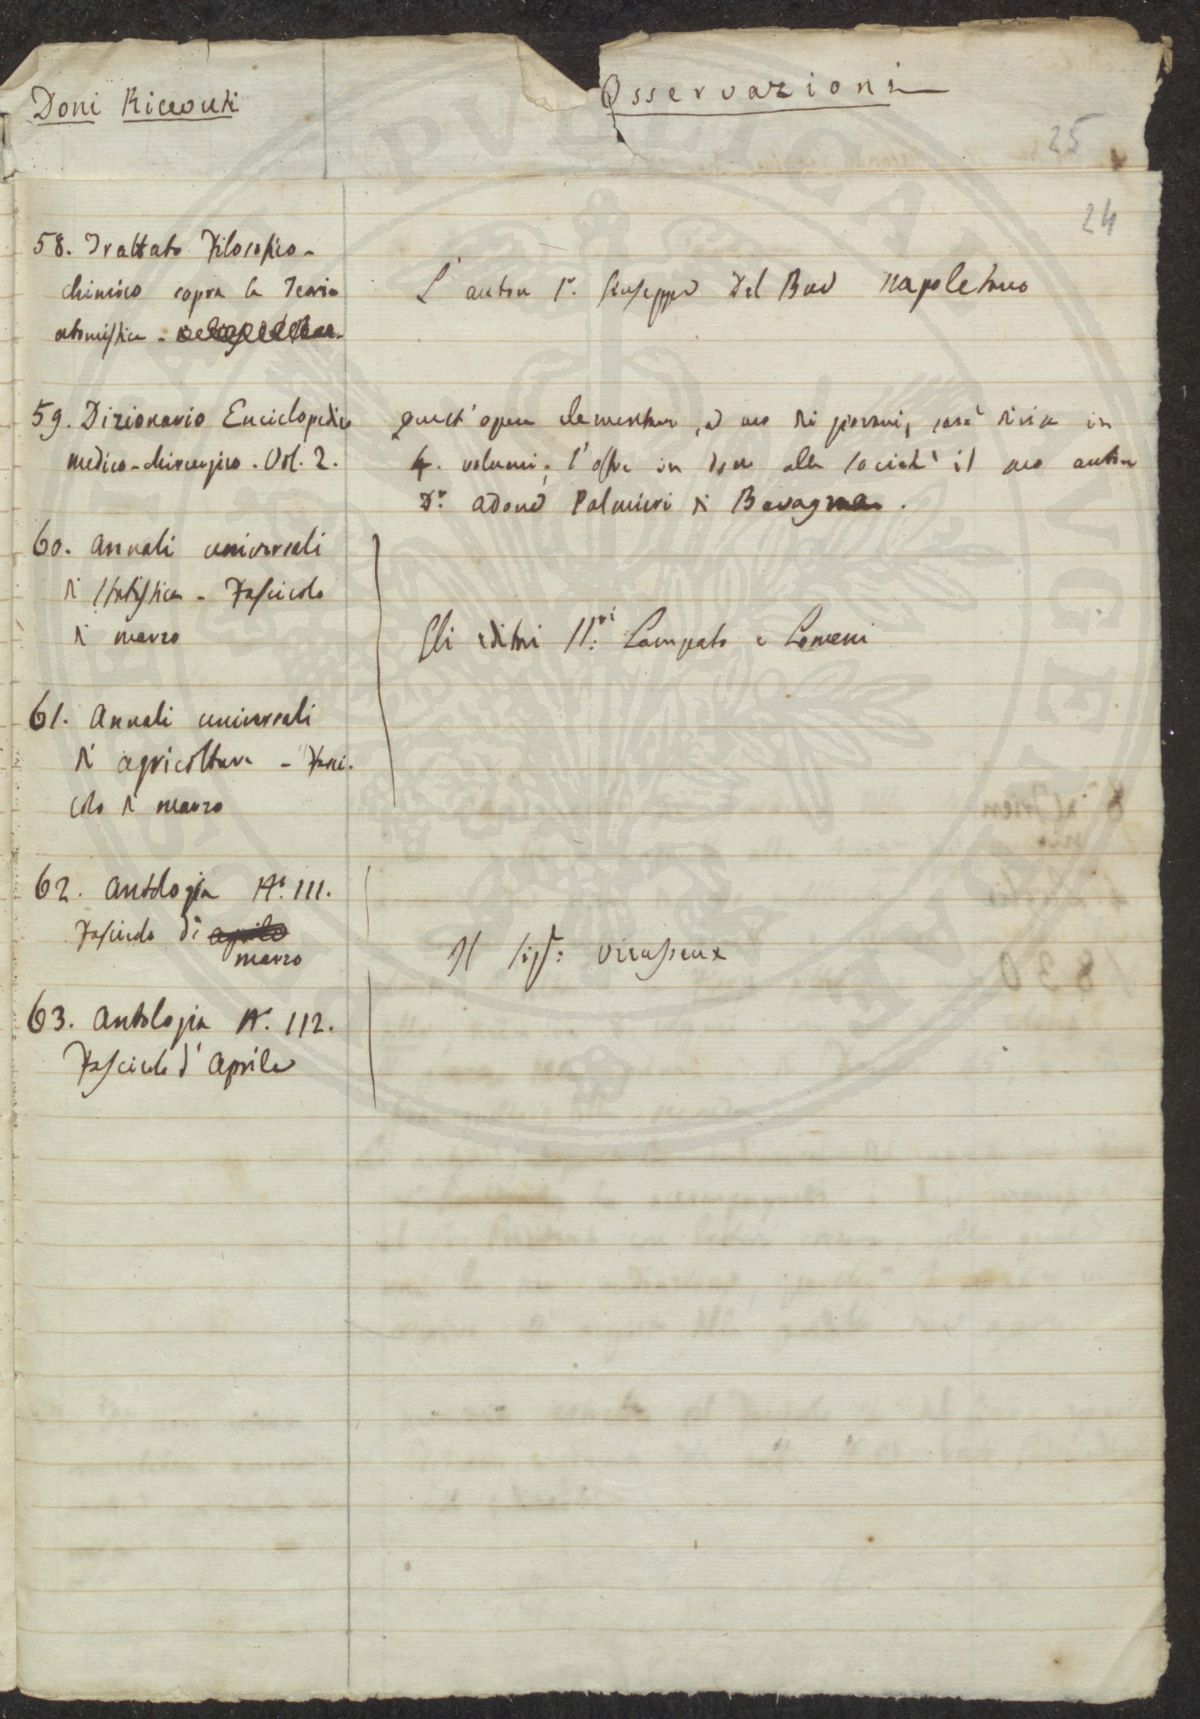 Doni Ricevuti
Osservazioni
25
24
58. Trattato Filosofico-
chimico sopra la Teoria
atomistica -
L'autore Sr. Giuseppe Del Bue Napoletano
59. Dizionario Enciclopedico
medico-chirurgico. Vol. 2.
Quest'opera elementare, ad uso di giovani, sarà divisa in
4. volumi; l'offre in dono alla Società il suo autore
Dr. Adone Palmieri di Bevagna.
60. Annali universali
di Statistica - Fascicolo
di marzo
Gli editori SS:ri Lampato e Lomeni
61. Annali universali
di agricoltura - Fasci-
colo di marzo
62. Antologia No. 111.
Fascicolo di aprile
marzo
Il Sigr: Vieusseux
63. Antologia No. 112.
Fascicolo d'Aprile
1830
PVBLICA